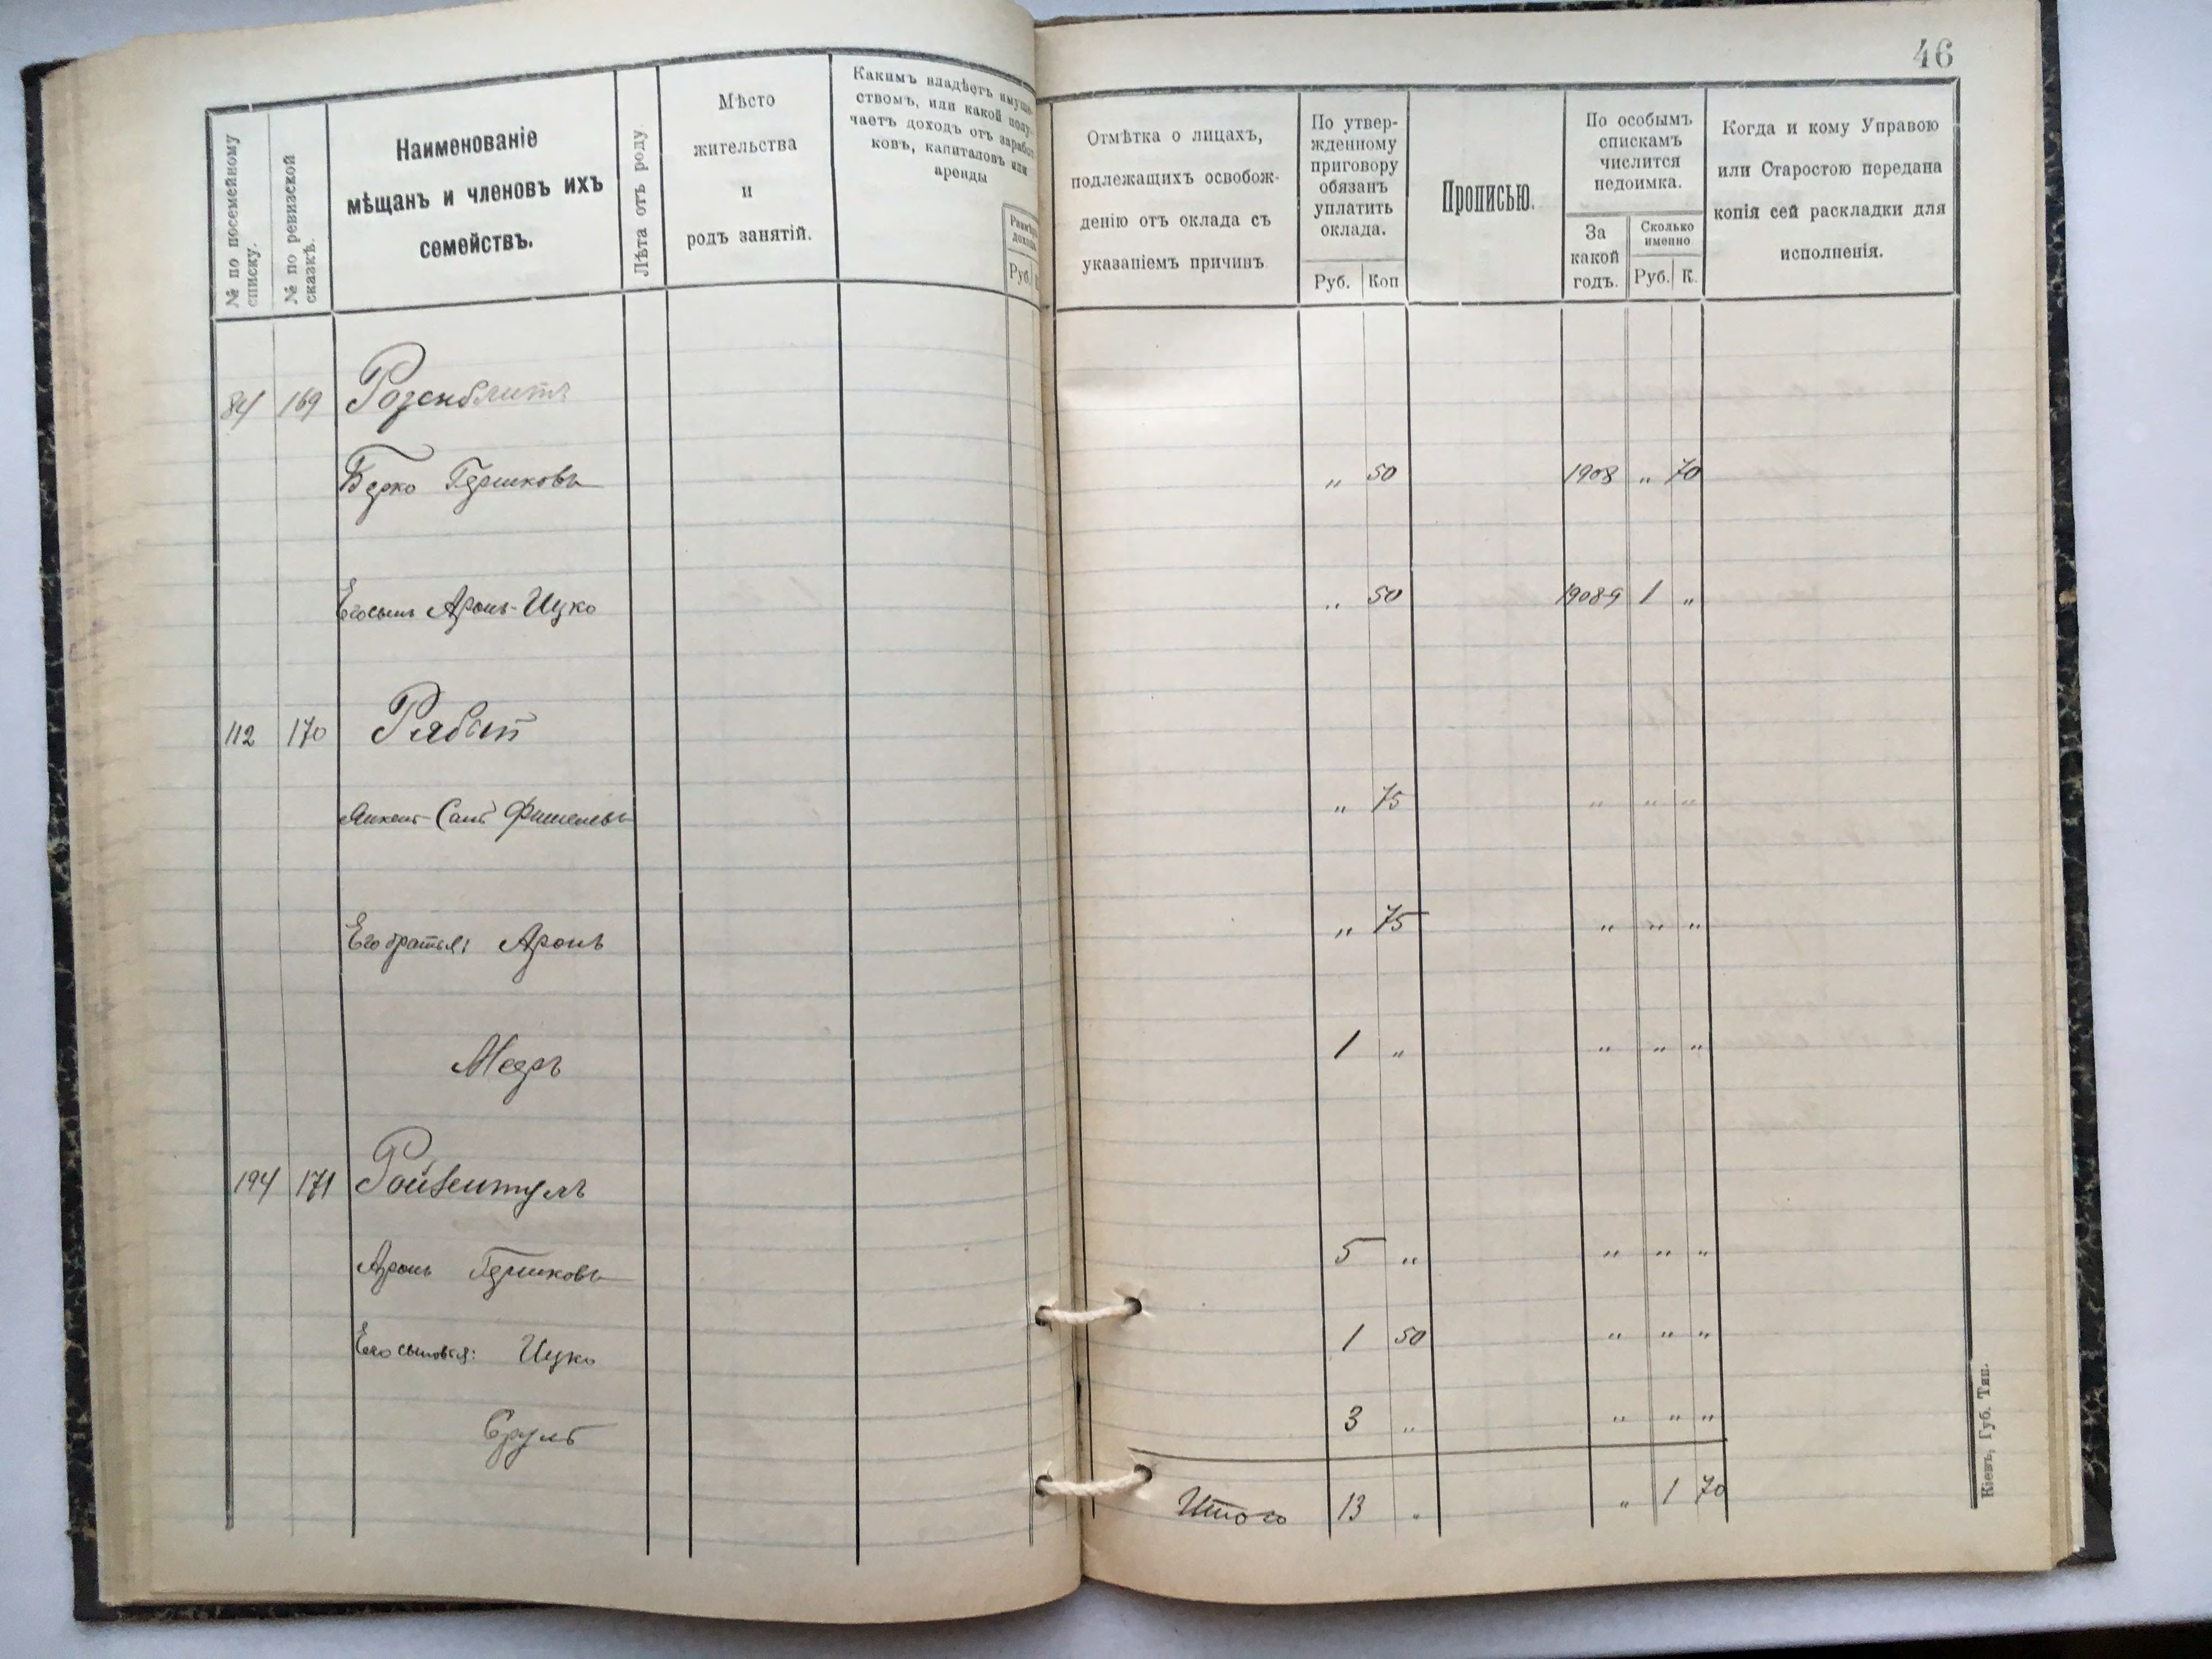 46
№ по посемейному
списку.
№ по ревизской
сказкѣ.
Наименованіе
мѣщанъ и членовъ ихъ
семействъ.
Лѣта отъ роду.
Мѣсто
жительства
и
родъ занятій.
Какимъ владѣетъ имуще-
ствомъ, или какой полу-
чаетъ доходъ отъ заработ-
ковъ, капиталовъ или
аренды
Размѣръ
дохода
Руб.
Отмѣтка о лицахъ,
подлежащихъ освобож-
денію отъ оклада съ
указаніемъ причинъ
По утвер-
жденному
приговору
обязанъ
уплатить
оклада.
Руб. Коп
Прописью.
По особымъ
спискамъ
числится
недоимка.
За
какой
годъ.
Сколько
именно
Руб. К.
Когда и кому Управою
или Старостою передана
копія сей раскладки для
исполненія.
84 169 Розенблитъ
Берко Гершковъ „ 50 1908 „ 70
Его сынъ Аронъ-Ицко „ 50 19089 1 „
112 170 Рябой
Янкель- Фишелевъ „ 75 „ „ „
Его братья: Аронъ „ 75 „ „ „
Мееръ 1 „ „ „ „
194 171 Ройзентулъ
Аронъ Гершковъ 5 „ „ „ „
Его сыновья: Ицко 1 50 „ „ „
Сруль 3 „ „ „ „
Итого 13 „ „ 1 70
Кіевъ, Губ. Тип.